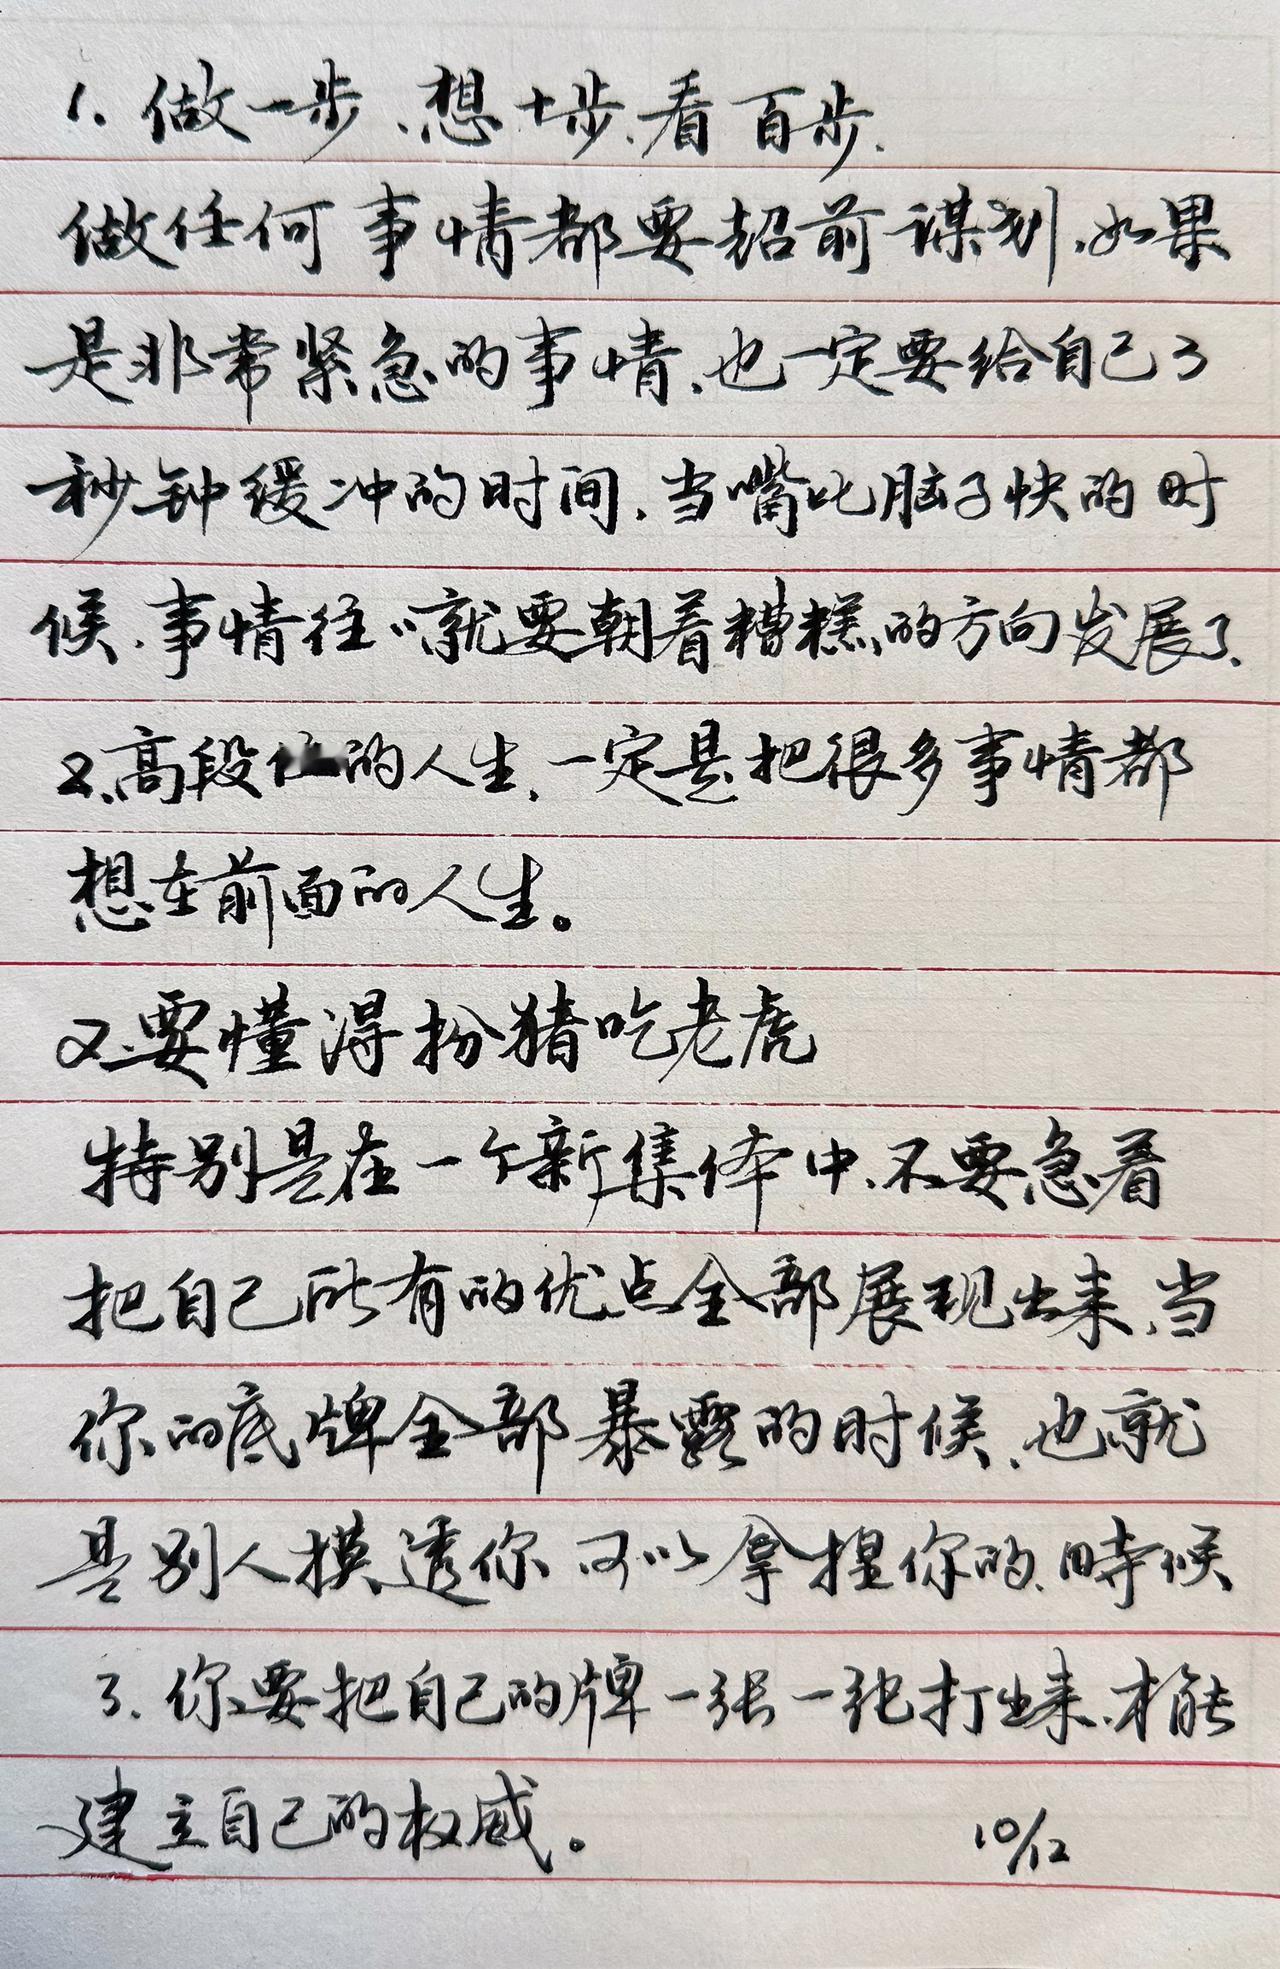 1、做一步、想十步、看百步.
做任何事情都要超前谋划、如果
是非常紧急的事情、也一定要给自己3
秒钟缓冲的时间、当嘴比脑子快的时
候、事情往〃就要朝着糟糕的方向发展了、
2、高段位的人生、一定是把很多事情都
想在前面的人生。
2、要懂得扮猪吃老虎
特别是在一个新集体中、不要急着
把自己所有的优点全部展现出来、当
你的底牌全部暴露的时候、也就
是别人摸透你可以拿捏你的、時候
3、你要把自己的牌一张一张打出来、才能
建立自己的权威。
10/12